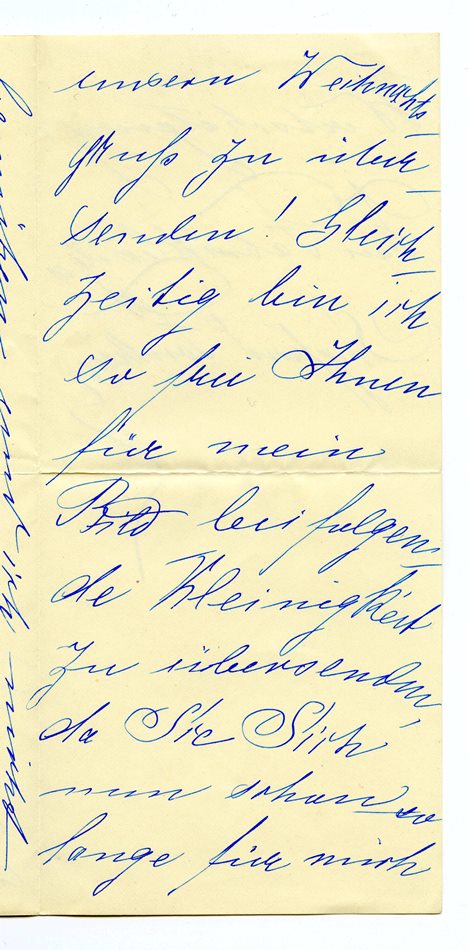 unsern Weihnachts-
gruß zu über-
senden! Gleich-
zeitig bin ich
so frei Ihnen
für mein
Bild beifolgen-
de Kleinigkeit
zu übersenden,
da Sie Sich
nun schon so
lange für mich
bemühen und ich nicht